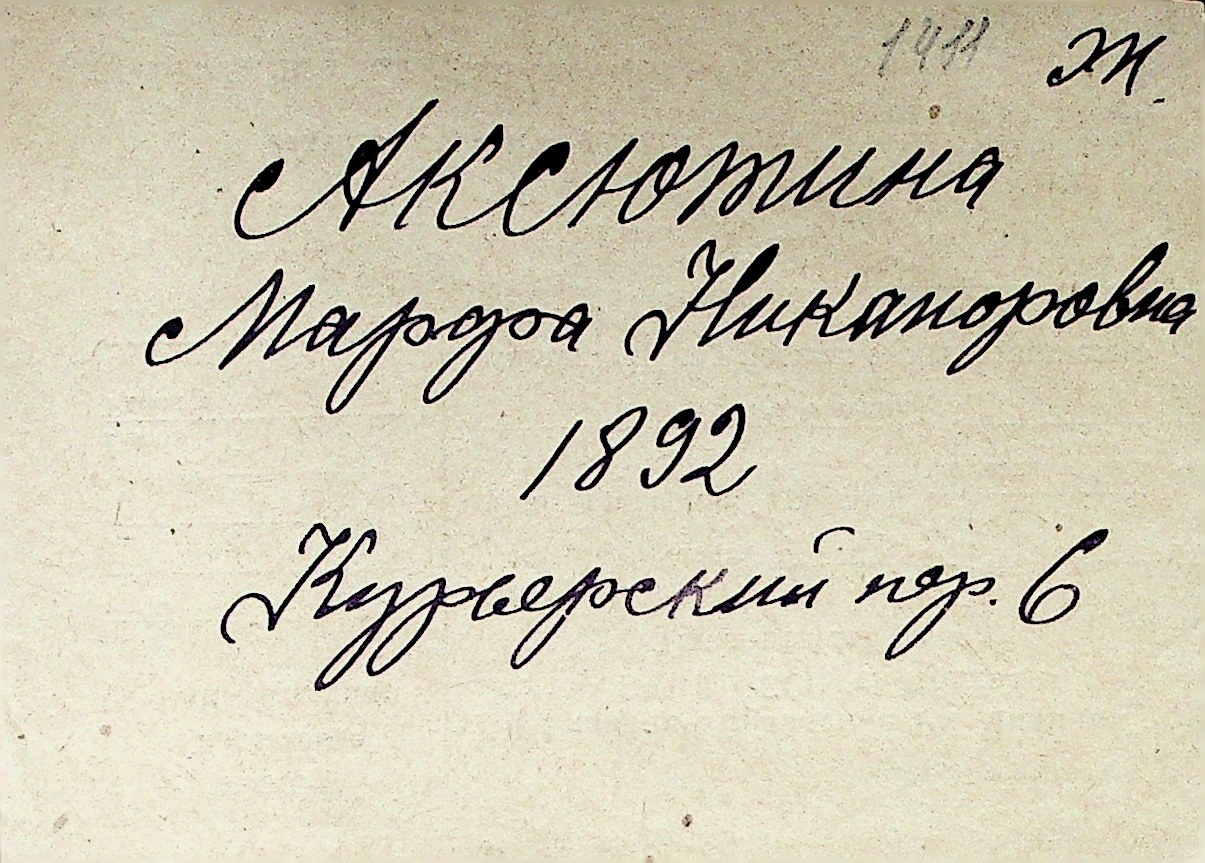 1411 Ж.
Аксютина
Марфа Никаноровна
1892
Курьерский пер. 6